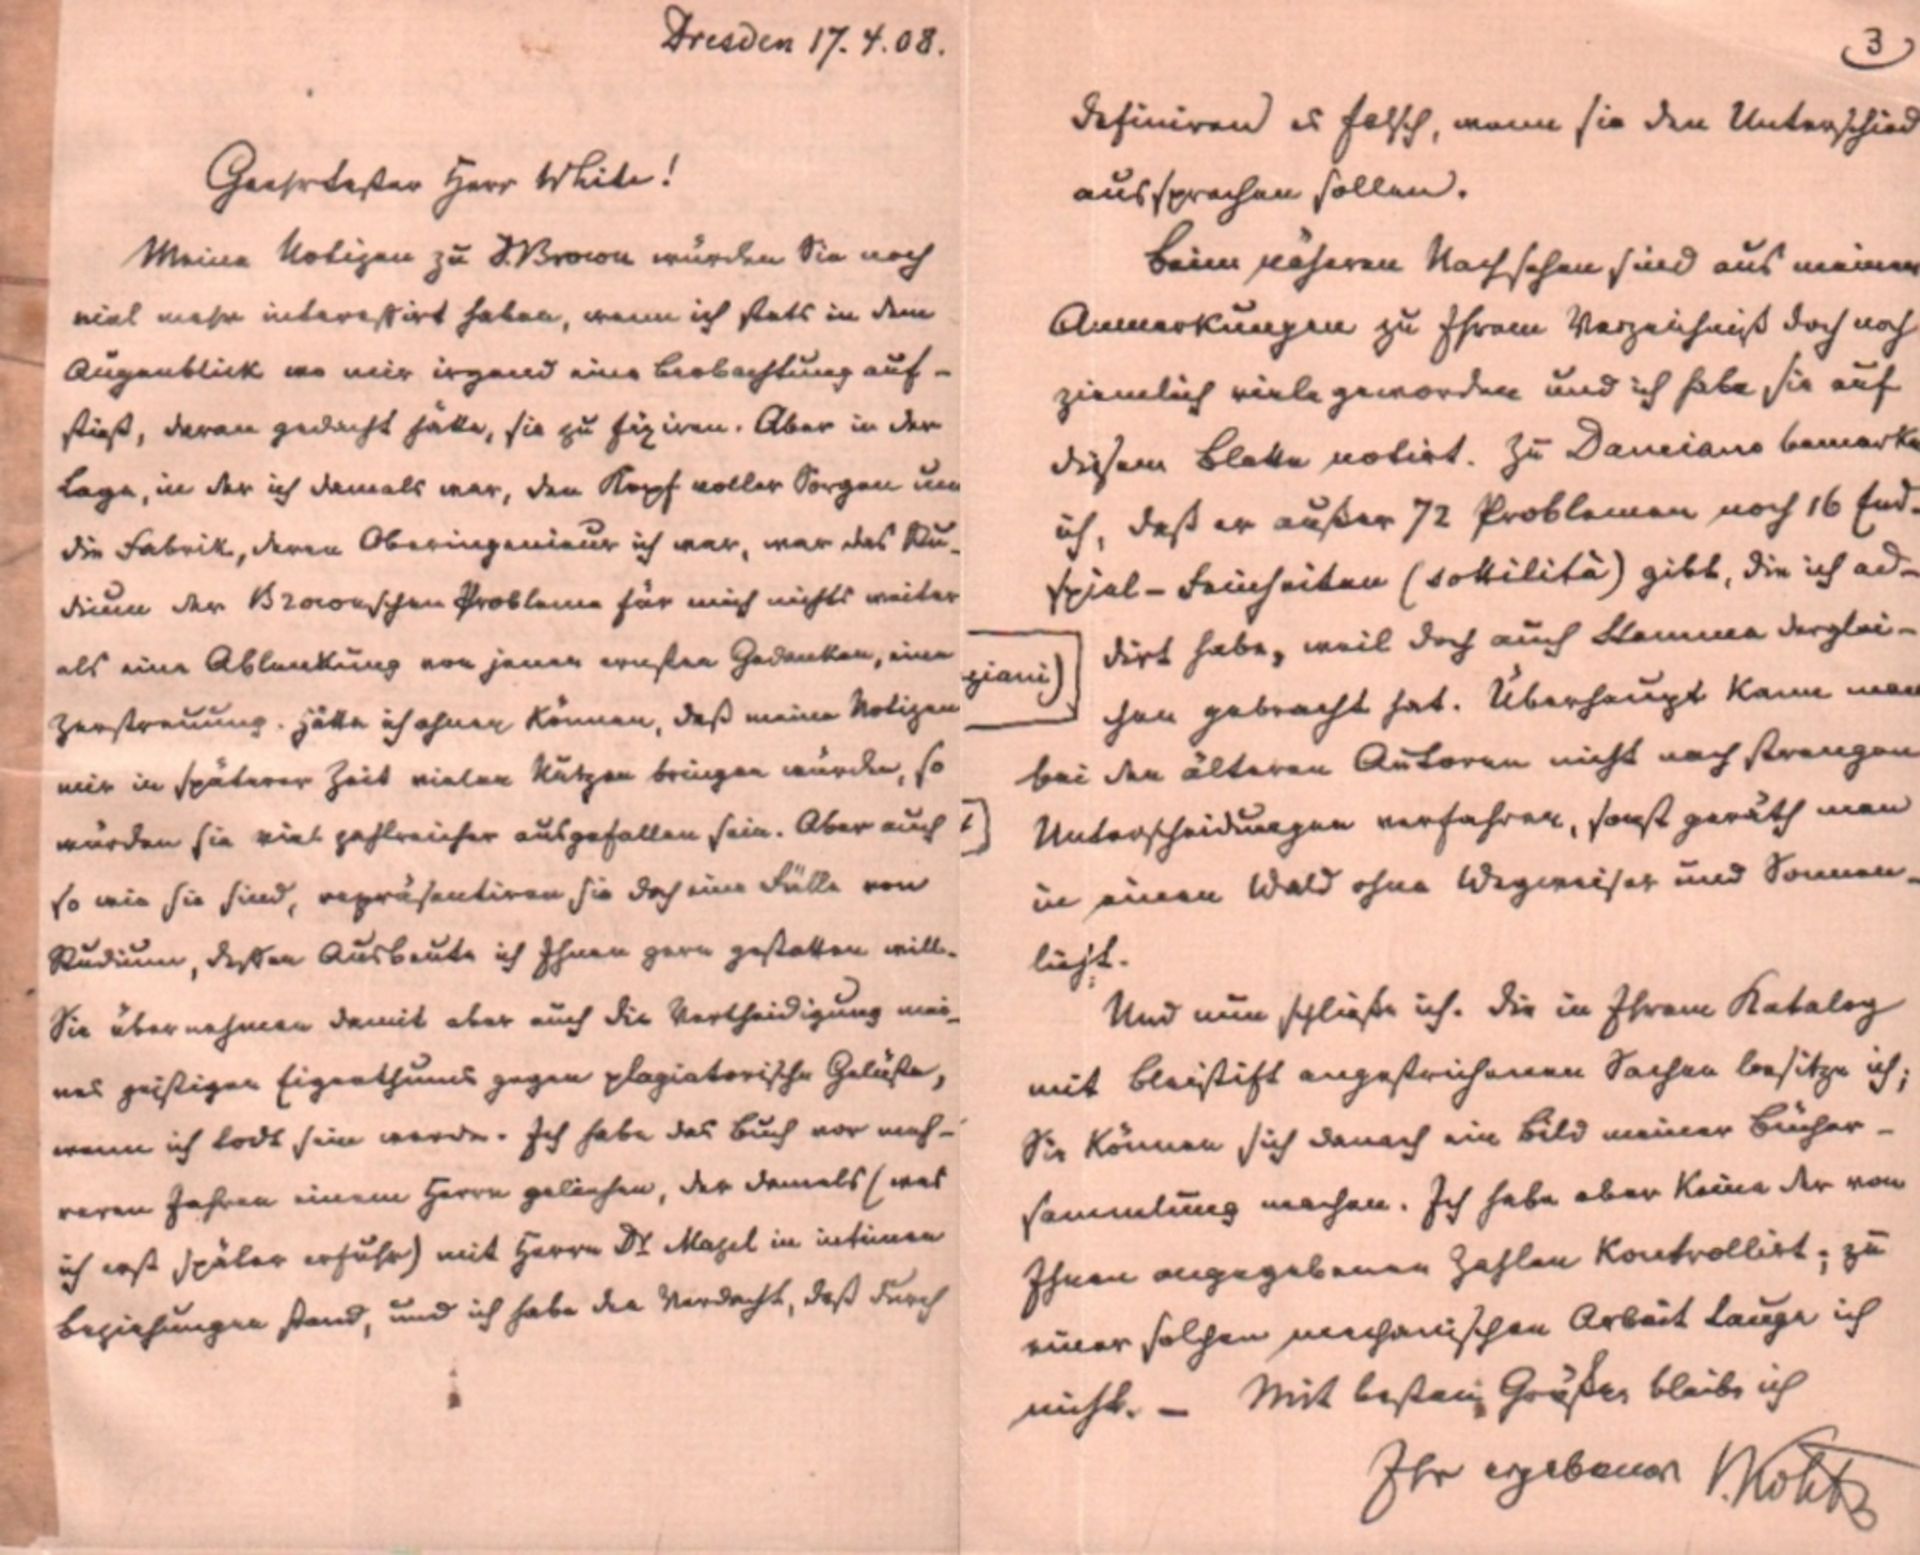 Dresden 17.4.08.
Geehrtester Herr White!
Meine Notizen zu J. Brown würden Sie noch
viel mehr interessirt haben, wenn ich stets in dem
Augenblick wo mir irgend eine Beobachtung auf-
stieß, daran gedacht hätte, sie zu fixiren. Aber in der
Lage, in der ich damals war, den Kopf voller Sorgen um
die Fabrik, deren Oberingenieur ich war, war das Stu-
dium der Brownschen Probleme für mich nichts weiter
als eine Ablenkung von jenen ernsten Gedanken, eine
Zerstreuung. Hätte ich ahnen können, daß meine Notizen
mir in späterer Zeit vielen Nutzen bringen würden, so
würden sie viel zahlreicher ausgefallen sein. Aber auch
so wie sie sind, repräsentiren sie doch eine Fülle von
Studium, dessen Ausbeute ich Ihnen gern gestatten will.
Sie übernehmen damit aber auch die Vertheidigung mei-
nes geistigen Eigenthums gegen plagiatorische Gelüste,
wenn ich todt sein werde. Ich habe das Buch vor meh-
reren Jahren einem Herrn geliehen, der damals (was
ich erst später erfuhr) mit Herrn Dr. Mazel in intimen
Beziehungen stand, und ich habe den Verdacht, daß durch
3
definiren) es falsch, wenn sie den Unterschied
aussprechen sollen.
Beim näheren Nachsehen sind aus meinen
Anmerkungen zu Ihrem Verzeichniß doch noch
ziemlich viele geworden und ich habe sie auf
diesem Blatte notirt. Zu Damiano bemerke
ich, daß er außer 72 Problemen noch 16 End-
spiel-Feinheiten (sottilità) gibt, die ich ad-
dirt habe, weil doch auch Stamma derglei-
ziani)
chen gebracht hat. Überhaupt kann man
bei den älteren Autoren nicht nach strengen
Unterscheidungen verfahren, sonst geräth man
t]
in einen Wald ohne Wegweiser und Sonnen-
licht.
Und nun schließe ich. Die in Ihrem Katalog
mit Bleistift angestrichenen Sachen besitze ich;
Sie können sich danach ein Bild meiner Bücher-
sammlung machen. Ich habe aber keine der von
Ihnen angegebenen Zahlen kontrollirt; zu
einer solchen mechanischen Arbeit tauge ich
nicht. — Mit besten Grüßen bleibe ich
Ihr ergebener J. Kohtz